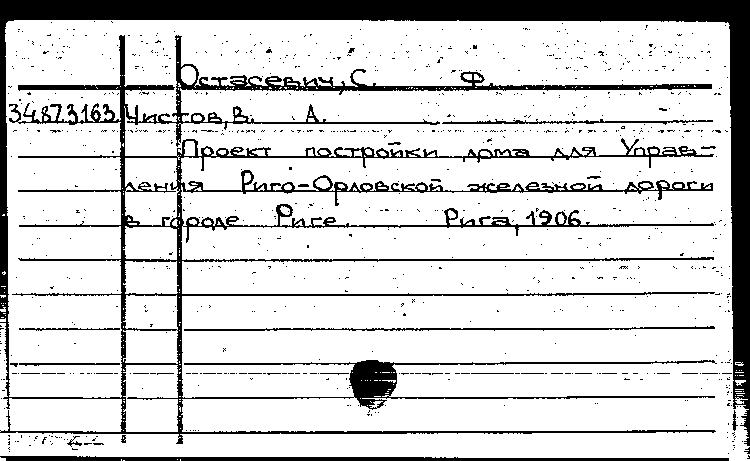 Остасевич, С. Ф.
34.873.163. Чистов, В. А.
Проект постройки дома для Управ-
ления Риго-Орловской железной дороги
в городе Риге. Рига, 1906.